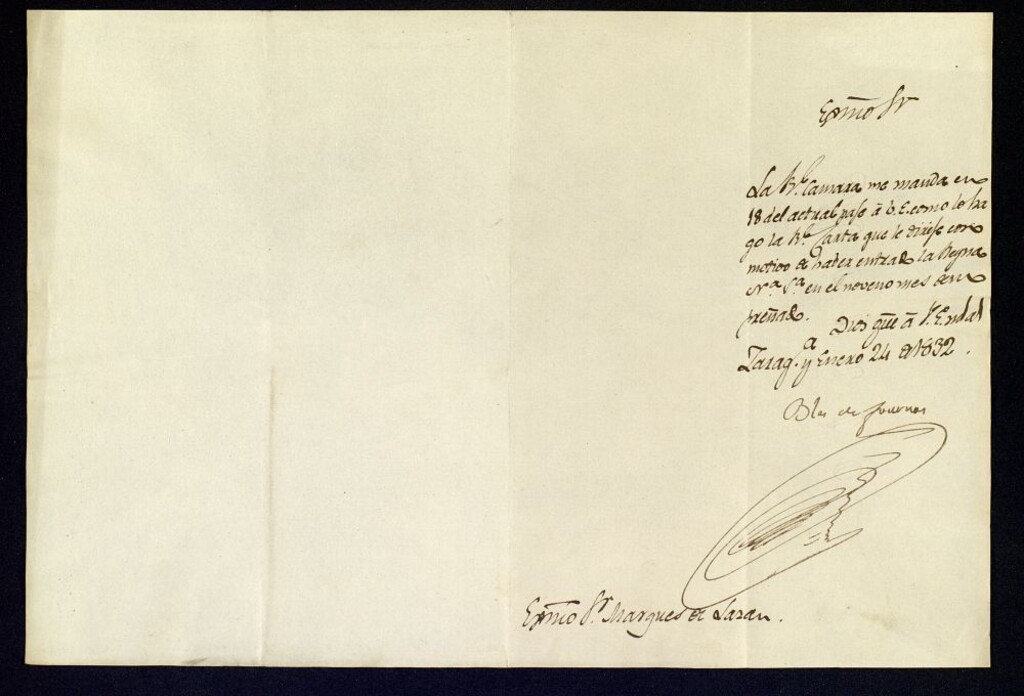 Exmo Sr
La Rl. Camara me manda en
18 del actual pase á V.E. como lo ha
go la Rl. Carta que le dirije con
motivo de haber entrado la Reyna
Nra. Sra. en el noveno mes de su
preñado. Dios gue á V.E. ms. as.
Zaragª. y Enero 24 de 1832.
Blas de Fournas
Exmo Sr. Marques de Lazan.